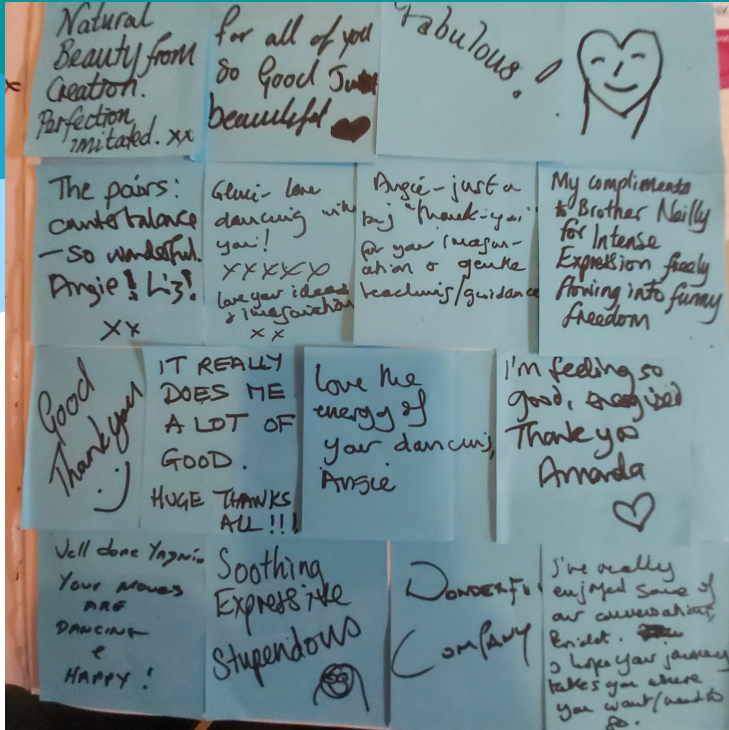 Natural
Beauty from
Creation.
Perfection
imitated. xx
for all of you
so Good
beautiful
Fabulous!
The pairs:
counterbalance
- so wonderful.
Angie! Liz!
XX
love
dancing with
you!
XXXXX
love your ideas
& imagination
XX
Angie - just a
big "thank-you"
for your imagin-
ation & gentle
teaching/guidance
My compliments
to Brother Neilly
for Intense
Expression freely
flowing into funny
freedom
Good
Thank you
:)
IT REALLY
DOES ME
A LOT OF
GOOD.
HUGE THANKS
ALL!!!
Love the
energy of
your dancing,
Angie
I'm feeling so
good, energised
Thank you
Amanda
Well done
Your moves
ARE
DANCING
&
HAPPY!
Soothing
Expressive
Stupendous
WONDERFUL
COMPANY
I've really
enjoyed some of
our conversations,
I hope your journey
takes you where
you want/need to
go.